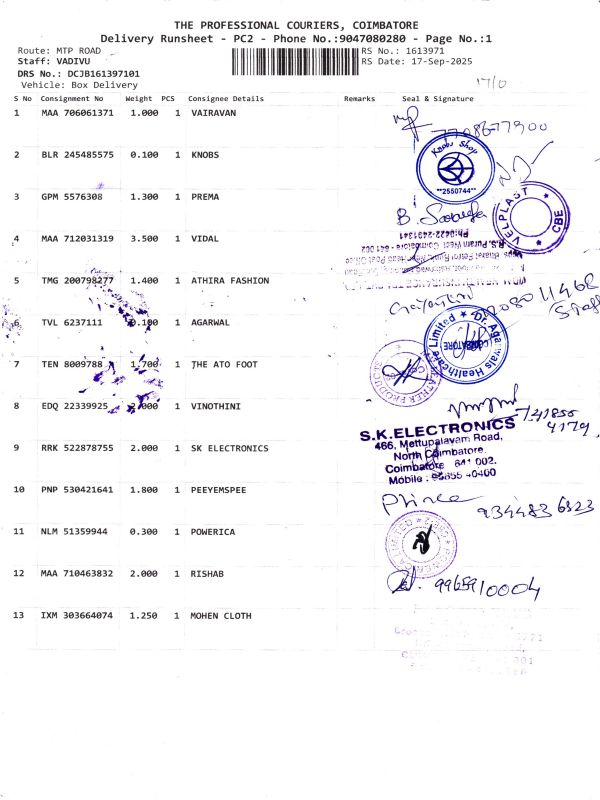 THE PROFESSIONAL COURIERS, COIMBATORE
Delivery Runsheet - PC2 - Phone No.:9047080280 - Page No.:1
Route: MTP ROAD RS No.: 1613971
Staff: VADIVU RS Date: 17-Sep-2025
DRS No.: DCJB161397101
Vehicle: Box Delivery
S No Consignment No Weight PCS Consignee Details Remarks Seal & Signature
1 MAA 706061371 1.000 1 VAIRAVAN
2 BLR 245485575 0.100 1 KNOBS
Knobs Shop
**2550744**
3 GPM 5576308 1.300 1 PREMA
VELPLAST
CBE
4 MAA 712031319 3.500 1 VIDAL
Ph:0422-2491341
R.S. Puram West, Coimbatore - 641 002
5 TMG 200798277 1.400 1 ATHIRA FASHION
6 TVL 6237111 0.100 1 AGARWAL
Dr. Agarwals Healthcare Limited
COIMBATORE
7 TEN 8009788 1.700 1 THE ATO FOOT
LEATHER PRODUCTS
8 EDQ 22339925 2.000 1 VINOTHINI
9 RRK 522878755 2.000 1 SK ELECTRONICS
S.K.ELECTRONICS
466, Mettupalayam Road,
North Coimbatore.
Coimbatore 641 002.
Mobile :
10 PNP 530421641 1.800 1 PEEYEMSPEE
Prince 9344836323
11 NLM 51359944 0.300 1 POWERICA
LIMITED
12 MAA 710463832 2.000 1 RISHAB
9965910004
13 IXM 303664074 1.250 1 MOHEN CLOTH